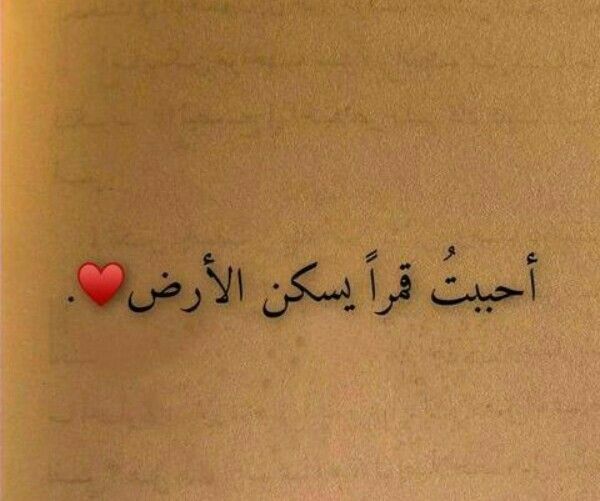 أحببتُ قمراً يسكن الأرض❤️.